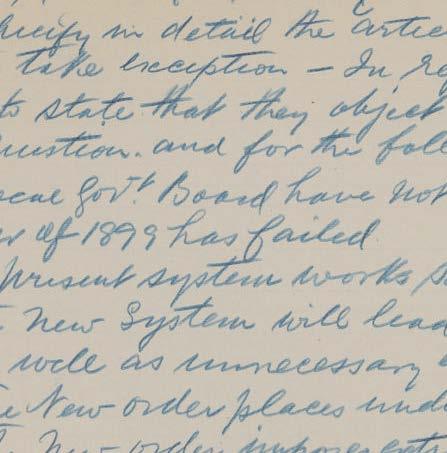 specify in detail the artic
take exception – In re
to state that they object
question. and for the foll
ocal Gov.t Board have not
er of 1899 has failed
present system works s
New System will lead
well as unnecessary
e New order places und
New order imposes extr